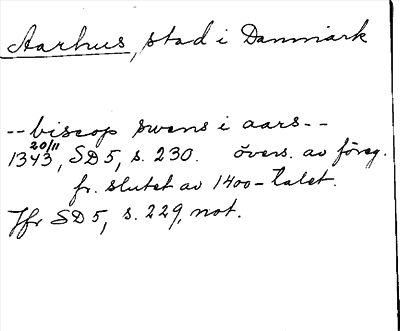 Aarhus, stad i Danmark
-- biscop swens i aars --
20/11
1343, SD 5, s. 230. övers. av föreg.
fr. slutet av 1400-talet.
Jfr SD 5, s. 229, not.